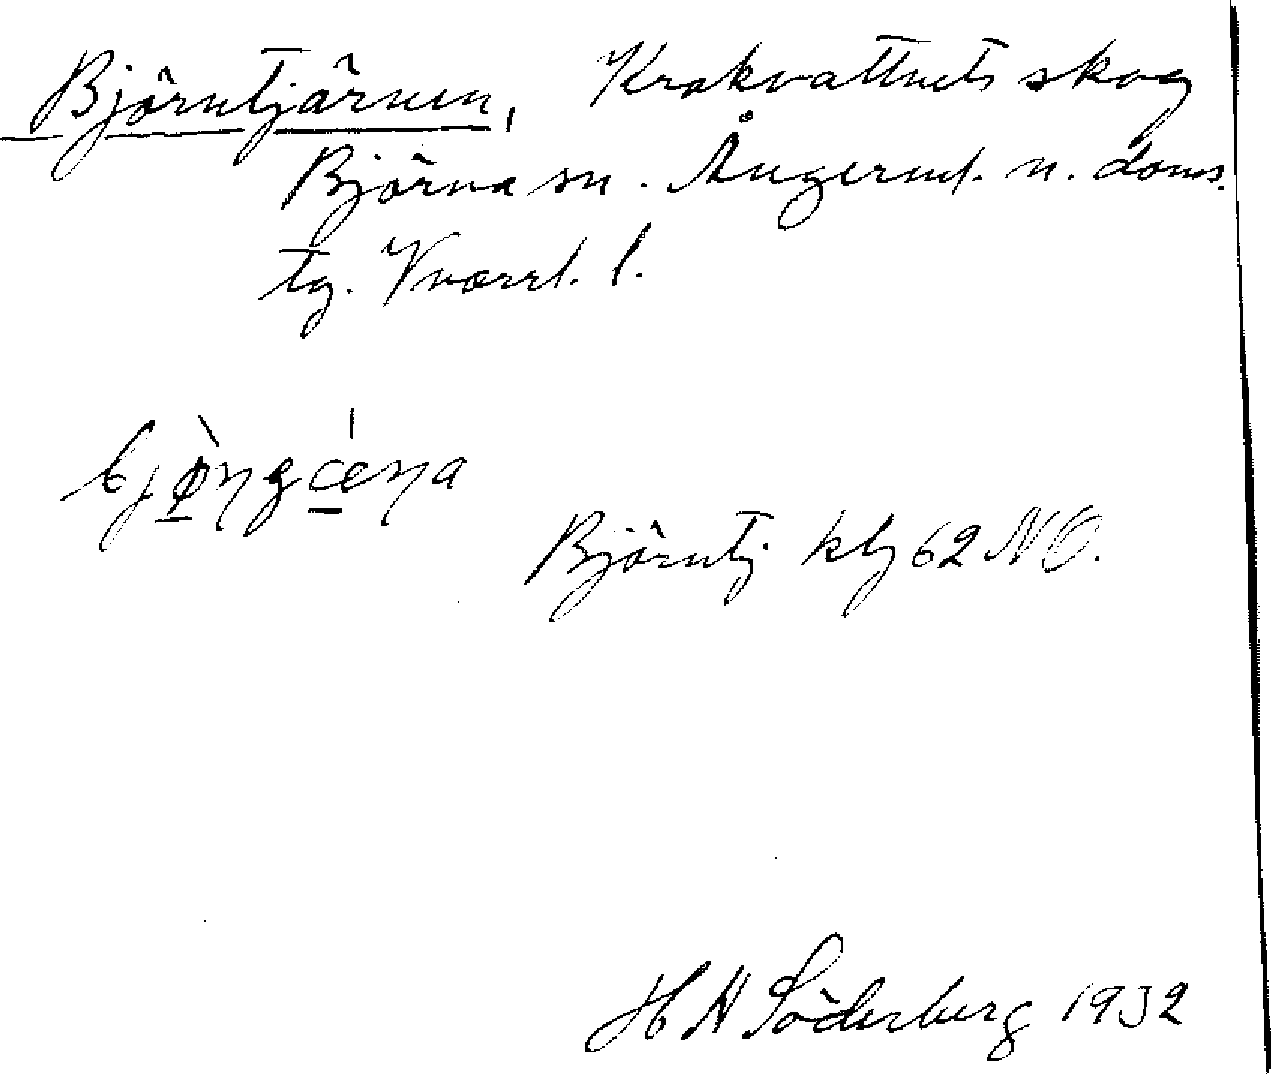 Björntjärnen, Krokvattnets skog
Björna sn. Ångerml. n. doms.
tg. Vnorrl. l.
Björntj. kbl 62 NO.
H A Söderberg 1932